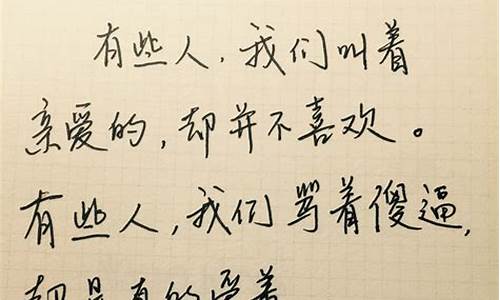 有些人，我们叫着
亲爱的，却并不喜欢。
有些人，我们骂着傻逼，
却是真的爱着